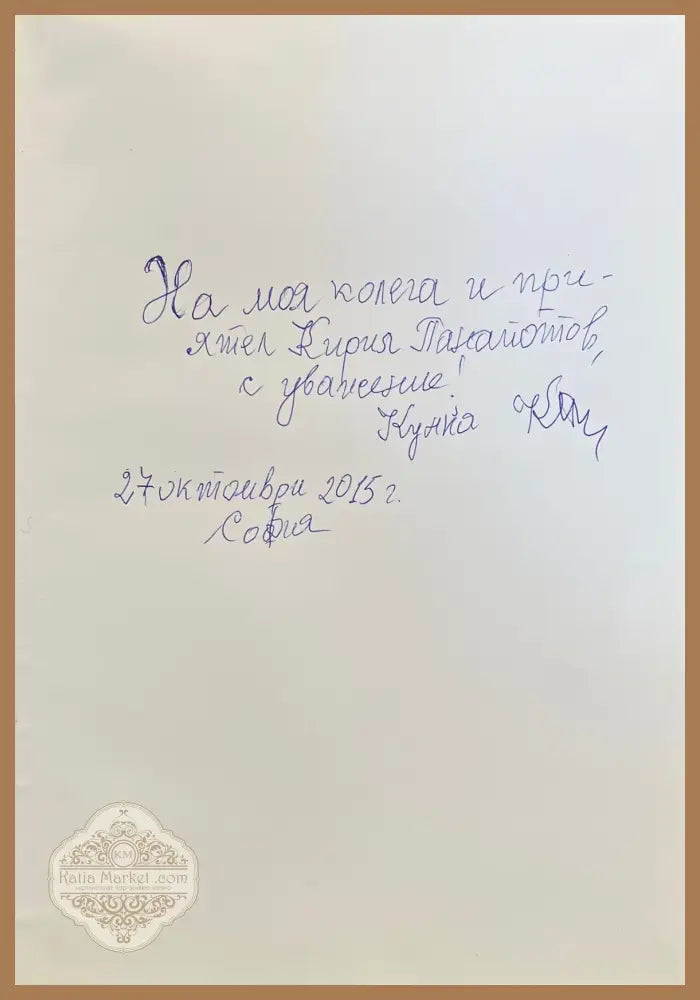 На моя колега и при-
ятел Кирил Панайотов,
с уважение!
Кунка
27 октомври 2015 г.
София
KM
Katia Market .com